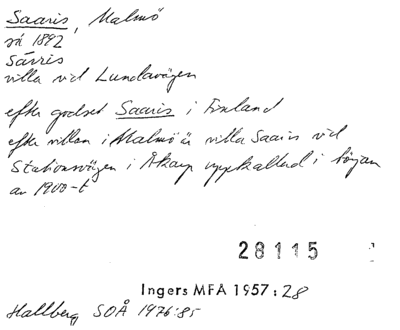 Saaris, Malmö
så 1892
Sárris
villa vid Lundavägen
efter godset Saaris i Finland
efter villan i Malmö är villa Saaris vid
Stationsvägen i Åkarp uppkallad i början
av 1900-t
28115
Ingers MFÅ 1957:28
Hallberg SOÅ 1976:85